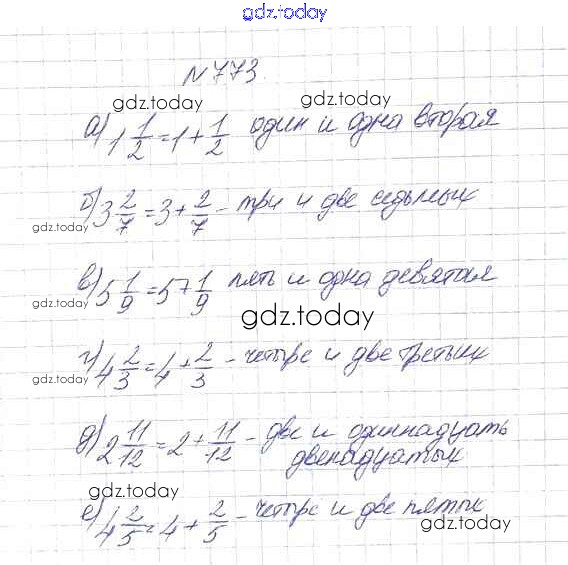 gdz.today
№ 773.
gdz.today gdz.today
а) 1 1/2 = 1 + 1/2 один и одна вторая
б) 3 2/7 = 3 + 2/7 - три и две седьмых
gdz.today
в) 5 1/9 = 5 + 1/9 пять и одна девятая
gdz.today
gdz.today
г) 4 2/3 = 4 + 2/3 - четыре и две третьих
gdz.today
д) 2 11/12 = 2 + 11/12 - две и одиннадцать
двенадцатых
gdz.today
е) 4 2/5 = 4 + 2/5 - четыре и две пятых
gdz.today